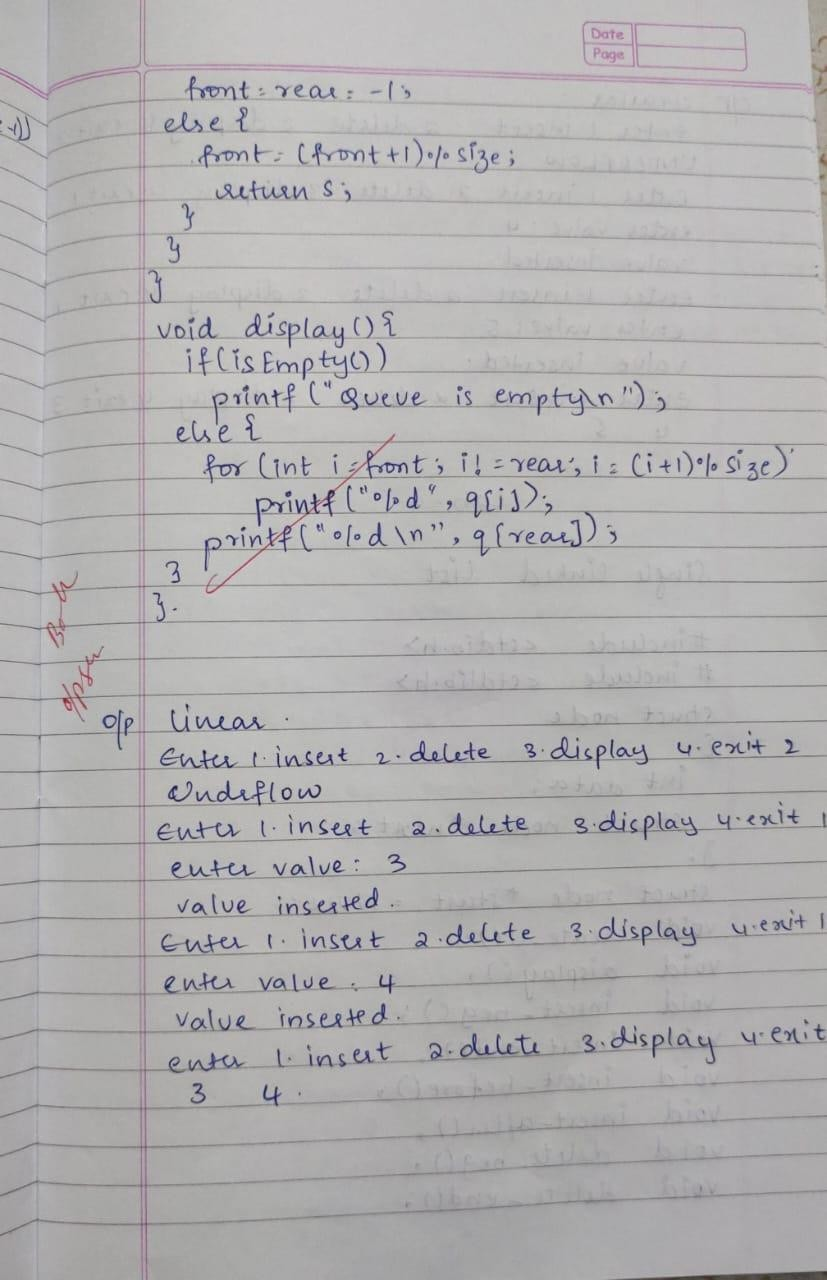 Date
Page
-1))
front = rear = -1;
else {
front = (front+1)% size;
return s;
}
}
}
void display() {
if(isEmpty())
printf("Queue is empty\n");
else {
for (int i = front; i! = rear; i = (i+1)% size)
printf("%d", q[i]);
printf("%d\n", q[rear]);
}
}.
o/p linear.
Enter 1. insert 2. delete 3. display 4. exit 2
Undeflow
Enter 1. insert 2. delete 3. display 4. exit 1
enter value: 3
value inserted.
Enter 1. insert 2. delete 3. display 4. exit 1
enter value: 4
value inserted.
enter 1. insert 2. delete 3. display 4. exit
3 4.